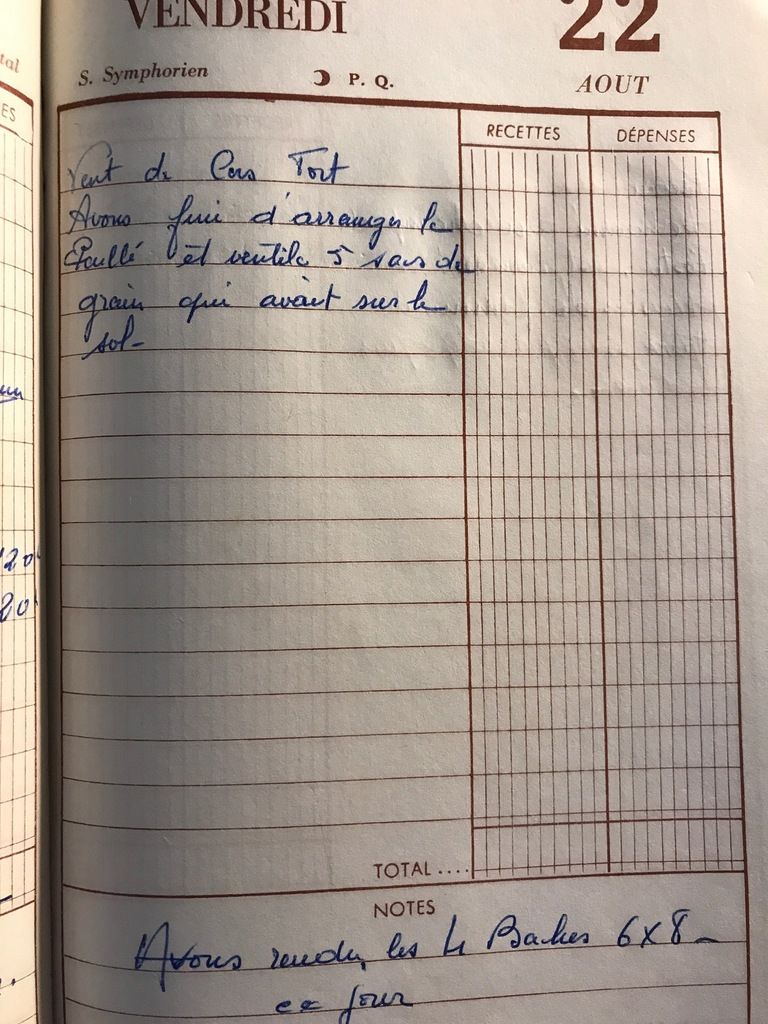 tal
ES
20
20
VENDREDI
22
S. Symphorien
P. Q.
AOUT
RECETTES
DÉPENSES
Vent de Cers Fort
Avons fini d'arranger le
et ventile 5 sacs de
grain qui avait sur le
sol-
TOTAL ....
NOTES
Avons rendu les 4 Baches 6x8-
ce jour